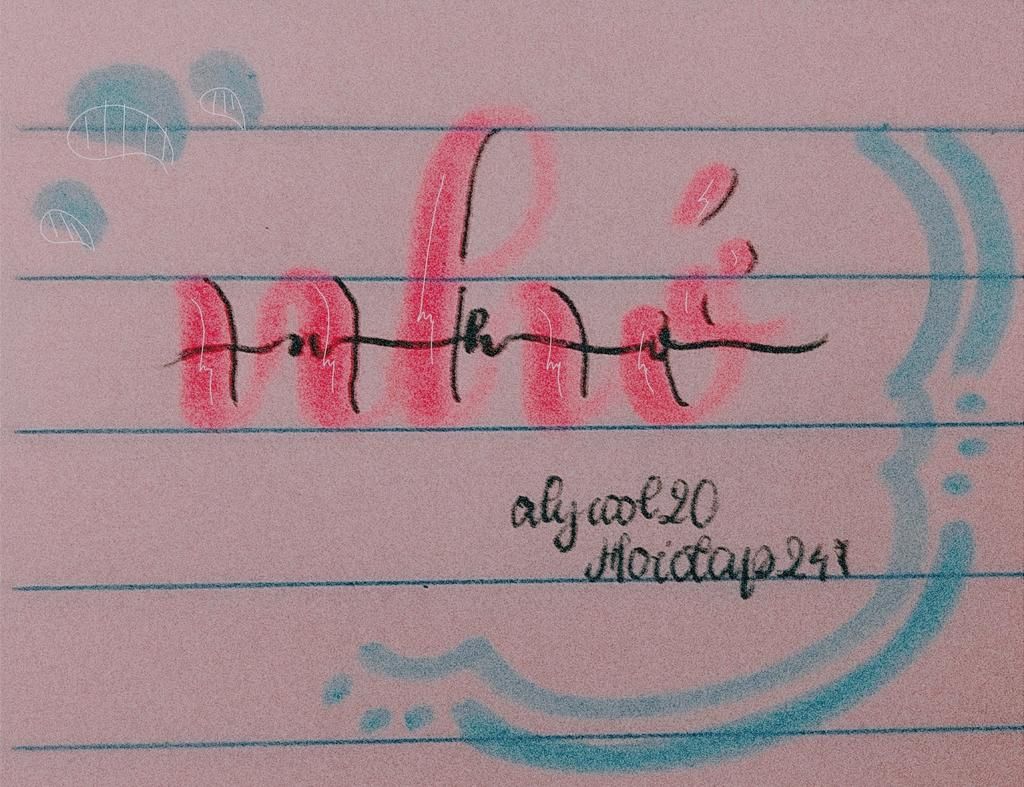 nhớ
alycool20
Hoidap247